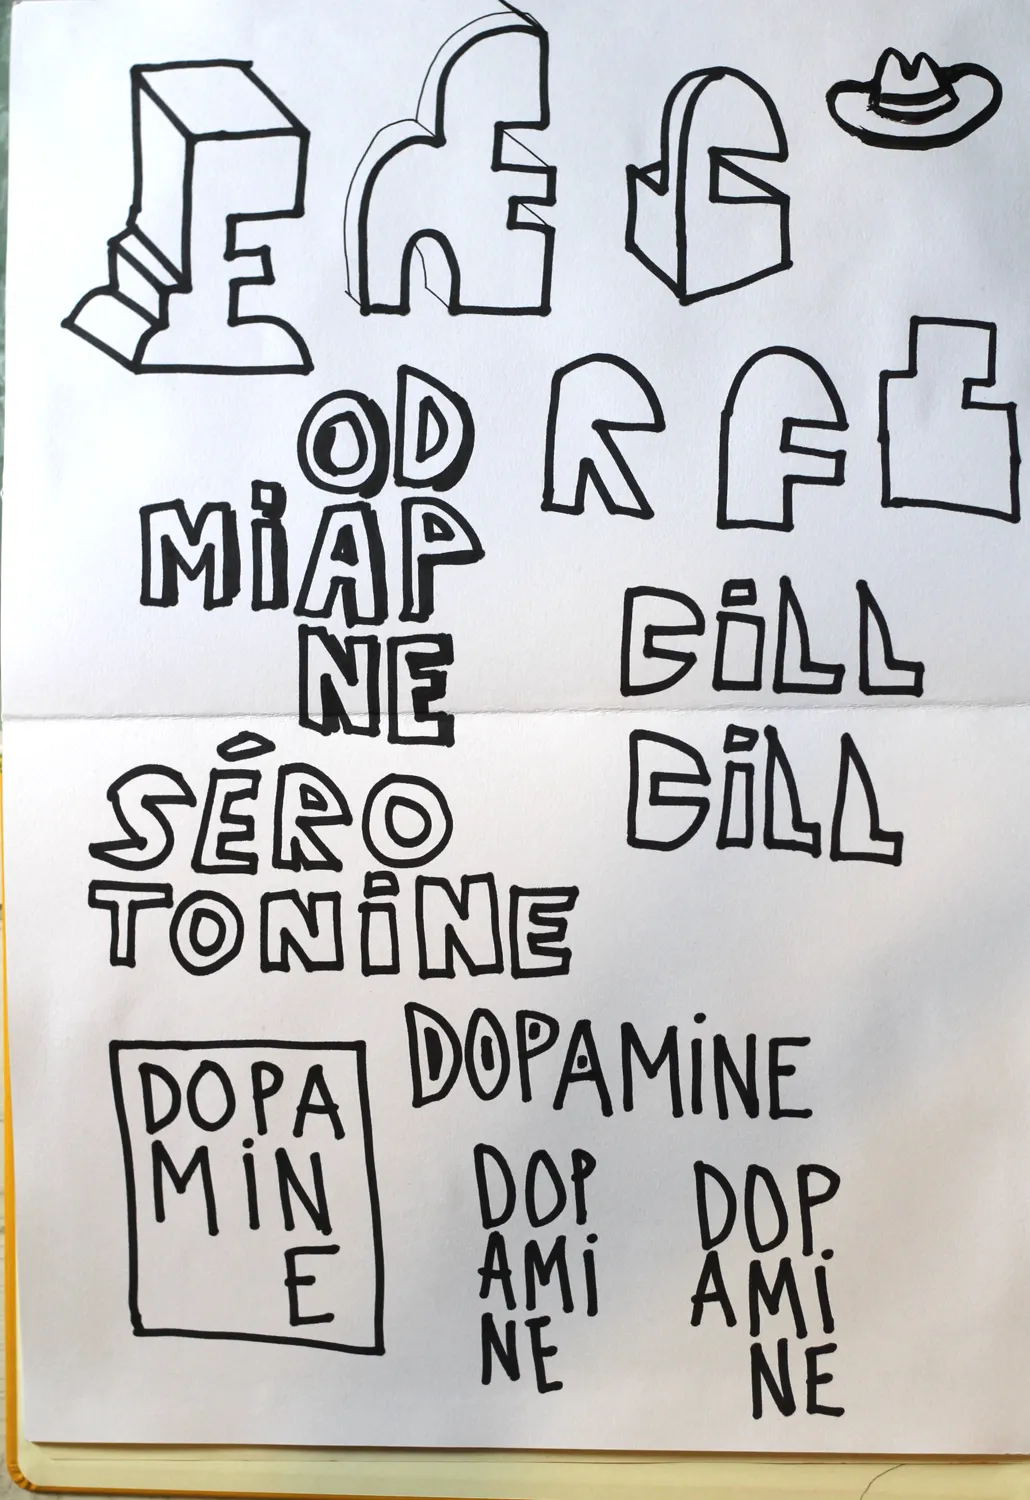 E
R F
OD
MiAP
NE
GiLL
GiLL
SÉRO
TONiNE
DOPAMiNE
DOPA
MiN
E
DOP
AMi
NE
DOP
AMi
NE